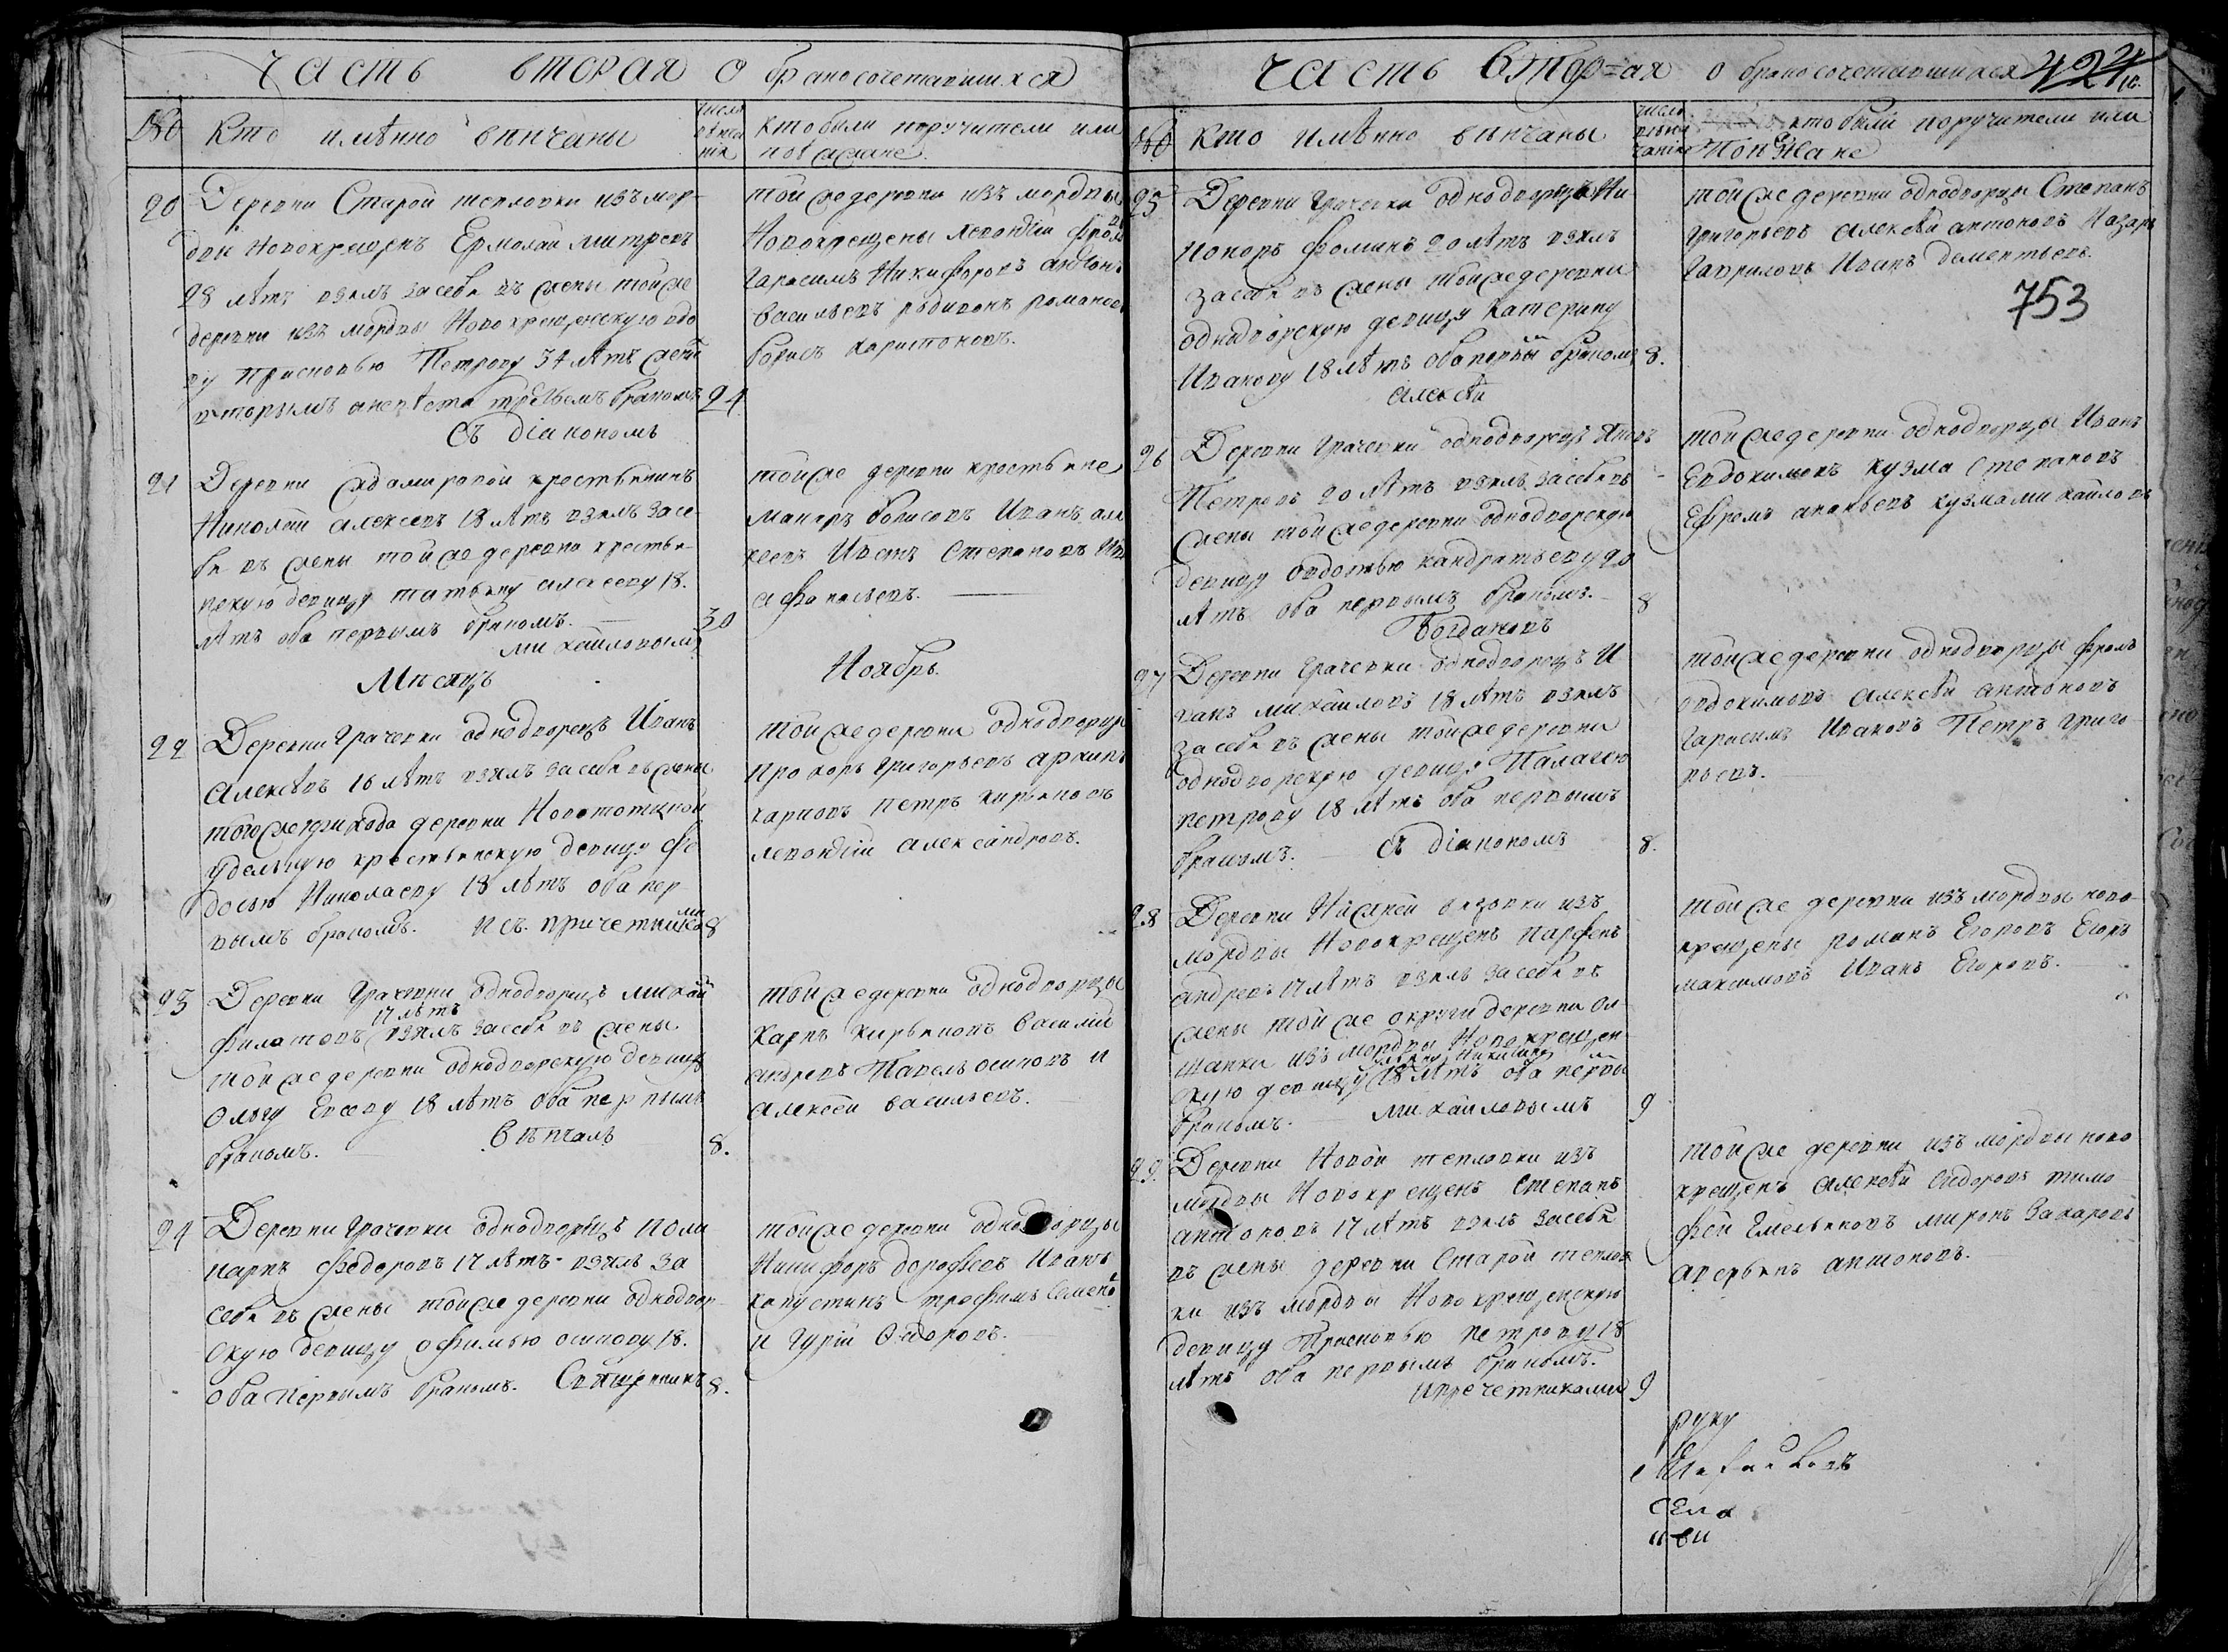 Часть вторая о браносочетавшихся
№
Кто имѣнно вѣнчаны
числа вѣнчанія
Кто были поручители или
поѣзжане
20
Деревни Старой тепловки изъ мор-
двы новокрещенъ Ермолай митревъ
28 лѣтъ взялъ засебя въ жены тойже
деревни изъ мордвы Новокрещенскую вдо
ву Прасковью Петрову 34 лѣтъ
вторымъ а невѣста третьемъ бракомъ
24
Съ діакономъ
тойже деревни изъ мордвы
Новокрещены левонтій
гарасимъ Никифоровъ антонъ
васильевъ родивонъ романовъ
борисъ харитоновъ.
21
Деревни крестьянинъ
Николай алексеевъ 18 лѣтъ взялъ засе-
бя въ жены тойже деревни крестья-
нскую девицу татьяну алексееву 18.
лѣтъ оба первымъ бракомъ.
30
михайловымъ
тойже деревни крестьяне
макаръ борисовъ Иванъ але
кеевъ Иванъ Степановъ
афонасьевъ.
Мѣсяцъ
Ноябрь.
22
Деревни Грачевки однодворецъ Иванъ
Алексѣевъ 16 лѣтъ взялъ засебя въ жены
тогоже прихода деревни
удельную крестьянскую девицу Фе
досью Николаеву 18 лѣтъ оба пер-
вымъ бракомъ. и съ. причетниками
8
тойже деревни однодворцы
Прохоръ григорьевъ архипъ
карповъ петръ кирьяновъ
левонтій александровъ.
23
Деревни Грачевки однодворецъ михай
17 лѣтъ
филатовъ взялъ засебя въ жены
тойже деревни однодворскую девицу
Ольгу Евсеву 18 лѣтъ оба первымъ
бракомъ. Вѣнчалъ
8.
тойже деревни однодворцы
Карпъ кирьяновъ василій
андревъ Павелъ осиповъ и
алексѣй васильевъ.
24
Деревни Грачевки однодворецъ поли
карпъ Федоровъ 17 лѣтъ взялъ за
себя въ жены тойже деревни однодвор-
скую девицу офимью осипову 18.
оба первымъ бракомъ. Священникъ
8.
тойже деревни однодворцы
Никифоръ дорофеевъ Иванъ
капустинъ трофимъ семено
и гурій Сидоровъ.
Часть Вторая о браносочетавшихся
424
№
Кто имѣнно вѣнчаны
числа вѣнчанія
кто были поручители или
Поезжане
25
Деревни Грачевки однодворецъ Ни
коноръ Фоминъ 20 лѣтъ взялъ
засебя въ жены тойже деревни
однодворскую девицу Катерину
Иванову 18 лѣтъ оба первый бракомъ
8.
алексѣй
тойже деревни однодворцы Степанъ
григорьевъ алексѣй антоновъ Назаръ
гавриловъ Иванъ дементьевъ.
753
26
Деревни Грачевки однодворецъ Яковъ
Петровъ 20 лѣтъ взялъ засебя въ
жены тойже деревни однодворскую
девицу овдотью кандратьеву 20
лѣтъ оба первымъ бракомъ.
8
Богдановъ
тойже деревни однодворцы Иванъ
Евдокимовъ кузма степановъ
Ефремъ ананьевъ кузма михайловъ
27
Деревни Грачевки однодворецъ И
ванъ михайловъ 18 лѣтъ взялъ
засебя въ жены тойже деревни
однодворскую девицу Палагею
петрову 18 лѣтъ оба первымъ
бракомъ. Съ діакономъ
8.
тойже деревни однодворцы фролъ
овдокимовъ алексѣй антоновъ
гарасимъ Ивановъ Петръ григо-
рьевъ.
28
Деревни Нижней вязовки изъ
мордвы Новокрещенъ парфенъ
андревъ 17 лѣтъ взялъ засебя въ
жены тойже округи деревни ол-
шанки изъ мордвы Новокрещен
скую девицу Никитину 18 лѣтъ оба первы
бракомъ. михайловымъ
9
тойже деревни изъ мордвы ново-
крещены романъ Егоровъ Егоръ
максимовъ Иванъ Егоровъ.
29.
Деревни Новой тепловки изъ
мордвы Новокрещенъ Степанъ
антоновъ 17 лѣтъ взялъ засебя
въ жены деревни Старой теплов
ки изъ мордвы Новокрещенскую
девицу Прасковью петрову 18
лѣтъ оба первымъ бракомъ.
ипречетниками
9
тойже деревни изъ мордвы ново
крещенъ алексѣй Сидоровъ тимо
фей Емельяновъ миронъ Захаровъ
аверьянъ антоновъ.
руку
села